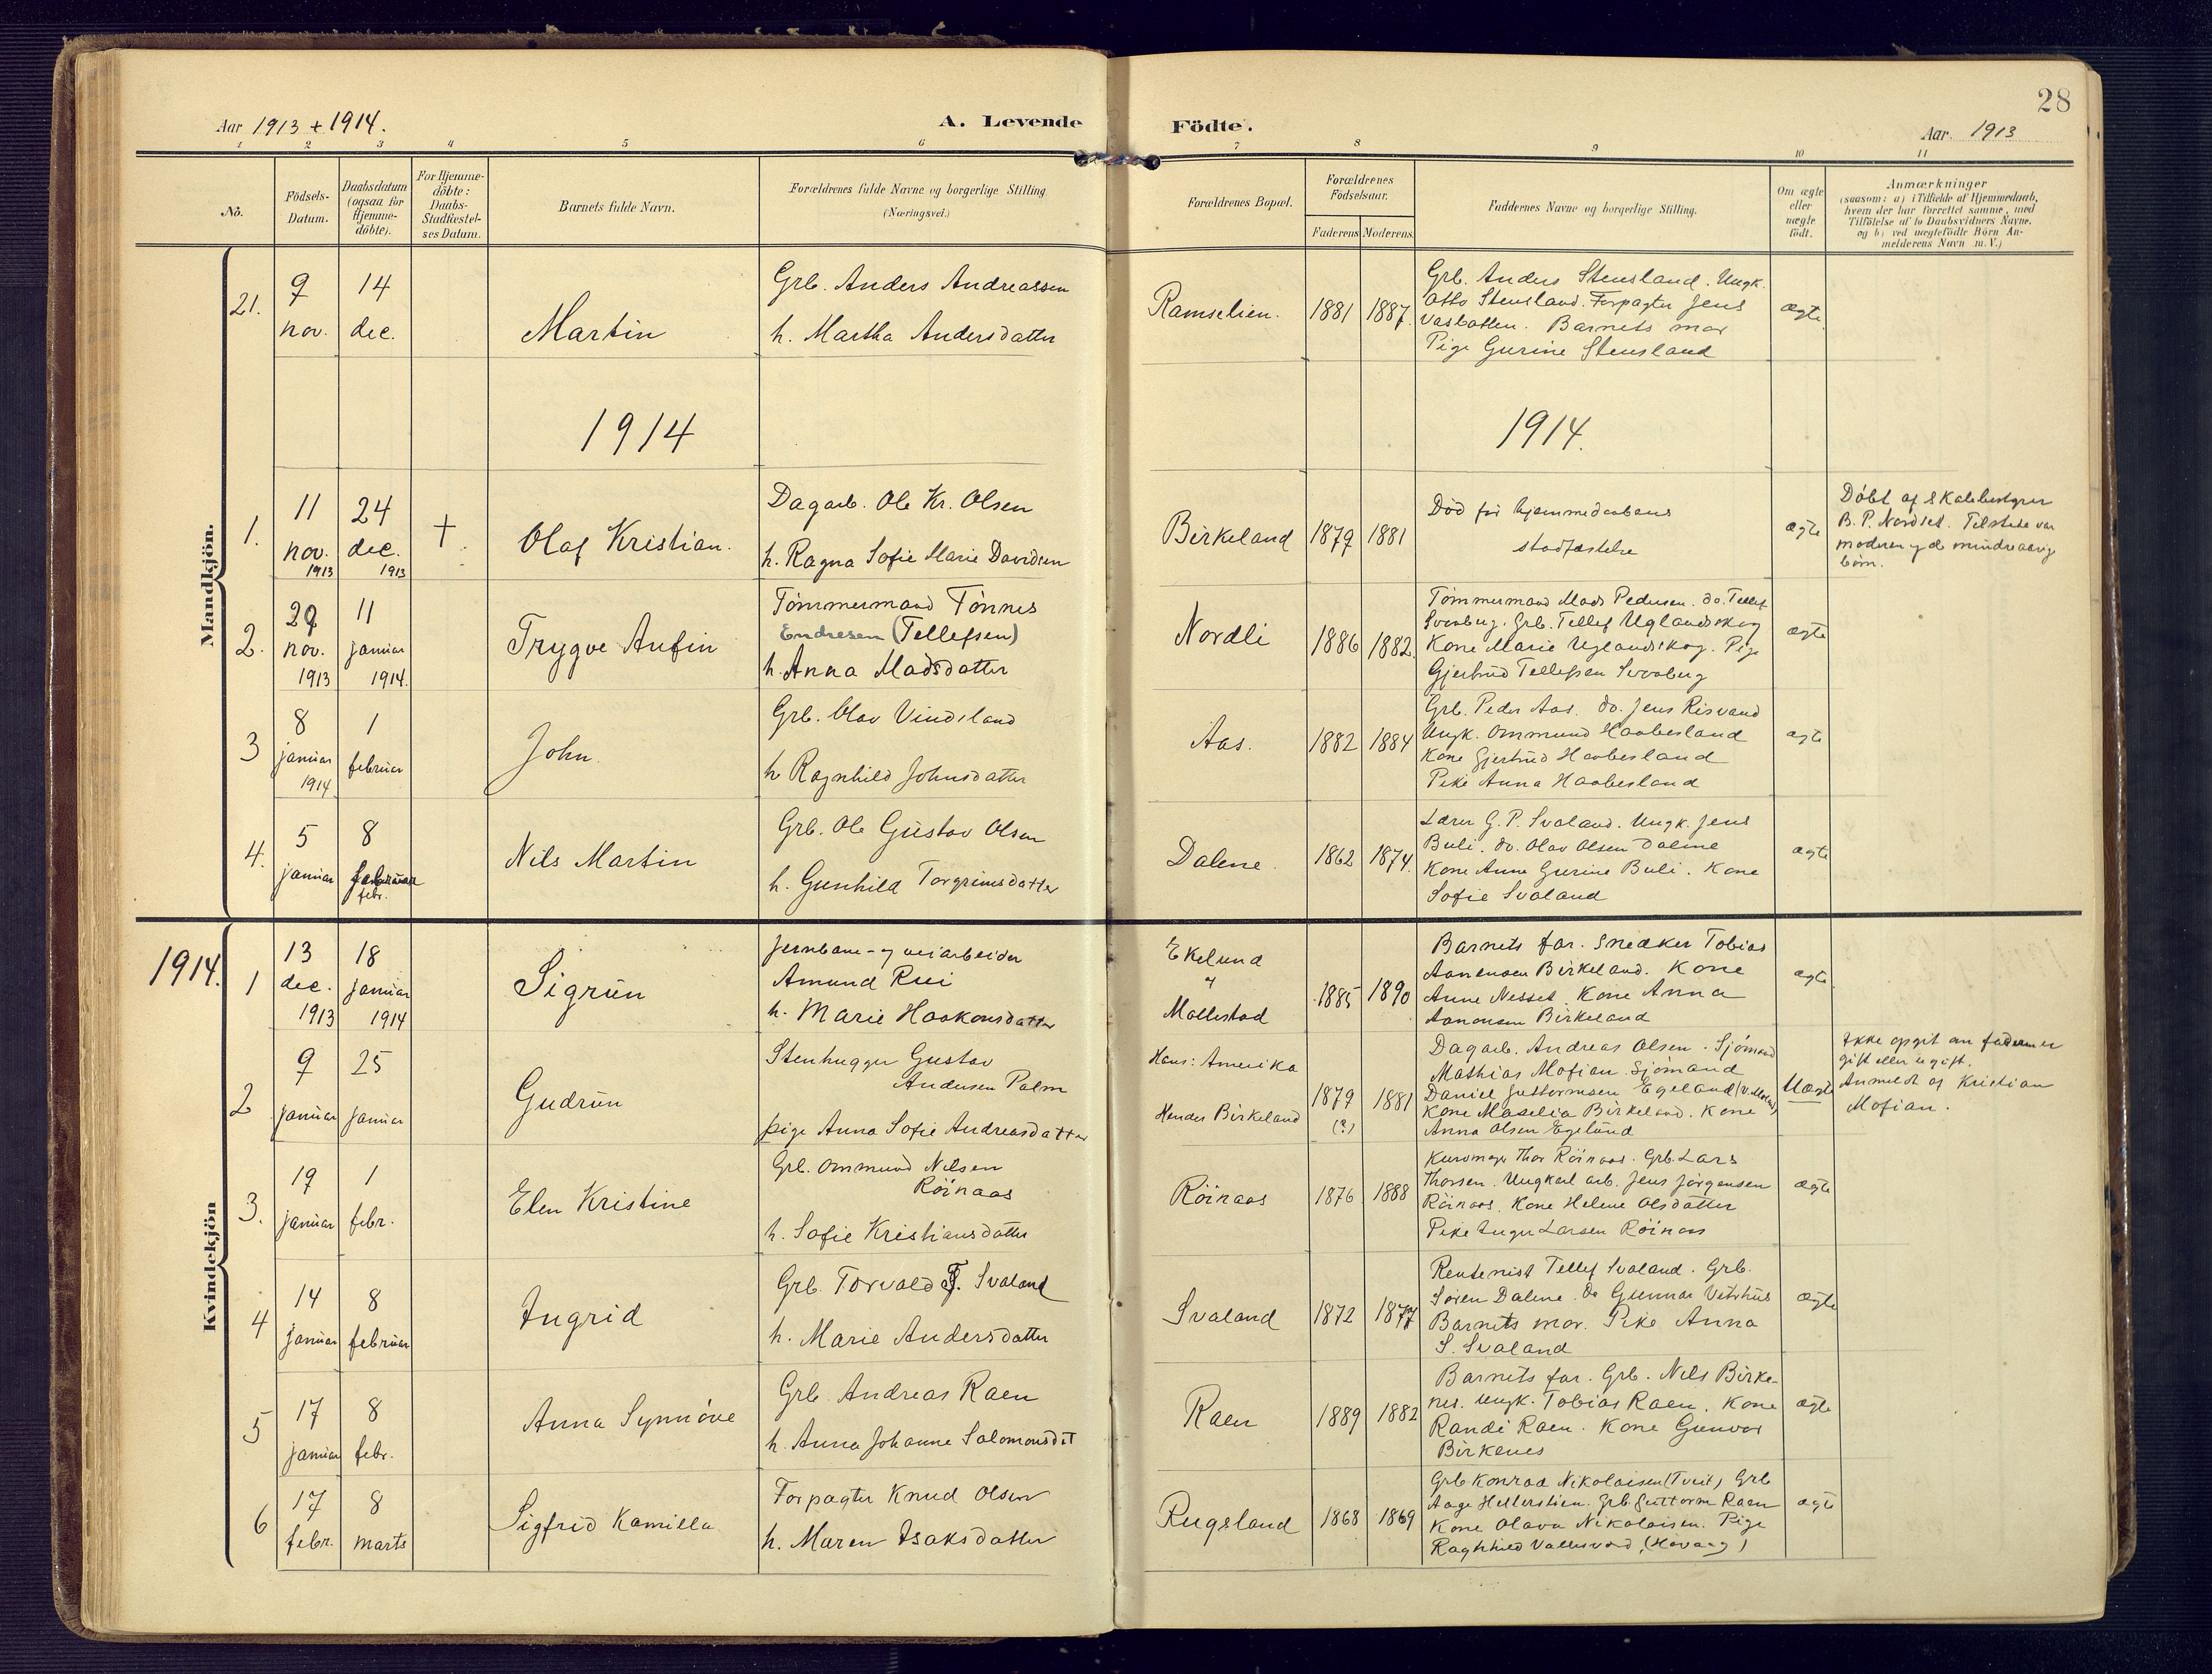 28
Aar 1913 + 1914.
A. Levende
Födte.
Aar. 1913
1 2 3 4 5 6 7 8 9 10 11
No.
Födsels-
Datum.
Daabsdatum
(ogsaa for
Hjemme-
döbte).
For Hjemme-
döbte:
Daabs-
Stadfæstel-
ses Datum.
Barnets fulde Navn.
Forældrenes fulde Navne og borgerlige Stilling
(Næringsvei.)
Forældrenes Bopæl.
Forældrenes
Födselsaar.
Faderens
Moderens.
Faddernes Navne og borgerlige Stilling.
Om ægte
eller
uægte
födt.
Anmærkninger
(saasom: a) i Tilfælde af Hjemmedaab,
hvem der har forrettet samme, med
Tilföielse af to Daabsvidners Navne.
og b) ved uægtefödte Börn An-
melderens Navn m. V.)
Mandkjön.
21.
9
nov.
14
dec.
Martin
Grb. Anders Andreassen
h. Martha Andersdatter
Ramselien.
1881
1887.
Grb. Anders Stensland. Ungk.
Otto Stensland. Forpagter Jens
Vasbotten. Barnets mor
Pige Gurine Stensland
ægte
1914
1914.
1.
11
nov.
1913
24
dec.
1913
+
Olaf Kristian.
Dagarb. Ole Kr. Olsen
h. Ragna Sofie Marie Davidsen
Birkeland
1879
1881
Död för hjemmedaabens
stadfæstelse
ægte
Döbt af skolebestyrer
B. P. Nordset. Tilstede var
moderen og de mindreaarige
börn.
2.
29
nov.
1913
11
januar
1914.
Trygve Anfin
Tömmermand Tönnes
Endresen (Tellefsen)
h. Anna Madsdatter
Nordli
1886
1882.
Tömmermand Mads Pedersen. do. Tellef
Svaberg. Grb. Tellef Uglandskog
Kone Marie Uglandskog. Pige
Gjertrud Tellefsen Svaberg
ægte
3
8
januar
1914
1
februar
John
Grb. Olav Vindsland
h. Ragnhild Johnsdatter
Aas.
1882
1884
Grb. Peder Aas. do. Jens Risvand
Ungk. Ommund Haabesland
Kone Gjertrud Haabesland
Pike Anna Haabesland
ægte
4.
5
januar
8
februar
febr.
Nils Martin
Grb. Ole Gustav Olsen
h. Gunhild Torgrimsdatter
Dalene
1862
1874.
Lærer G. P. Svaland. Ungk. Jens
Buli. do. Olav Olsen Dalene
Kone Anne Gurine Buli. Kone
Sofie Svaland
ægte
1914.
Kvindekjön
1
13
dec.
1913
18
januar
1914
Sigrun
Jernbane- og veiarbeider
Amund Rui
h. Marie Haakonsdatter
Ekelund
og
Mollestad
1885
1890
Barnets far. Snedker Tobias
Aanensen Birkeland. Kone
Anne Nesset. Kone Anna
Aanensen Birkeland
ægte
2
9
januar
25
januar
Gudrun
Stenhugger Gustav
Andersen Palm
pige Anna Sofie Andreasdatter
Hans: Amerika
Hendes Birkeland
1879
(?)
1881
Dagarb. Andreas Olsen. Sjömand
Mathias Mofian. Sjömand
Daniel Guttormsen Egeland
Kone Maselia Birkeland. Kone
Anna Olsen Egelund
Uægte
Ikke opgit om faderen er
gift eller ugift.
Anmeldt af Kristian
Mofian.
3.
19
januar
1
febr.
Elen Kristine
Grb. Ommund Nilsen
Röinaas
h. Sofie Kristiansdatter
Röinaas
1876
1888
Kurvmager Thor Röinaas. Grb. Lars
Thorsen. Ungkarl arb. Jens Jörgensen
Röinaas. Kone Helene Olsdatter
Pike Inger Larsen Röinaas
ægte
4
14
januar
8
februar
Ingrid
Grb. Torvald T. Svaland
h. Marie Andersdatter
Svaland
1872
1877
Rentenist Tellef Svaland. Grb.
Sören Dalene. do Gunnar Vetrhus
Barnets mor. Pike Anna
S. Svaland
ægte
5
17
januar
8
febr.
Anna Synnöve
Grb. Andreas Raen
h. Anna Johanne Salomonsdt
Raen
1889
1882
Barnets far. Grb. Nils Birke-
nes. Ungk. Tobias Raen. Kone
Randi Raen. Kone Gunvor
Birkenes
ægte
6
17
febr.
8
marts
Sigfrid Kamilla
Forpagter Knud Olsen
h. Maren Isaksdatter
Rugsland
1868
1869
Grb Konrad Nikolaisen (Tveit) Grb
Aage Hellerslien. Grb Guttorm Raen
Kone Olava Nikolaisen. Pige
Raghhild Vallesverd, (Hövaag)
ægte